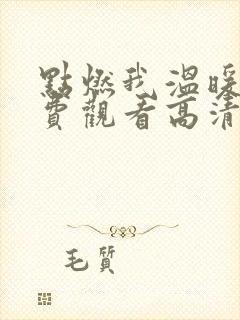 點燃我 溫暖
費觀看高清
毛質